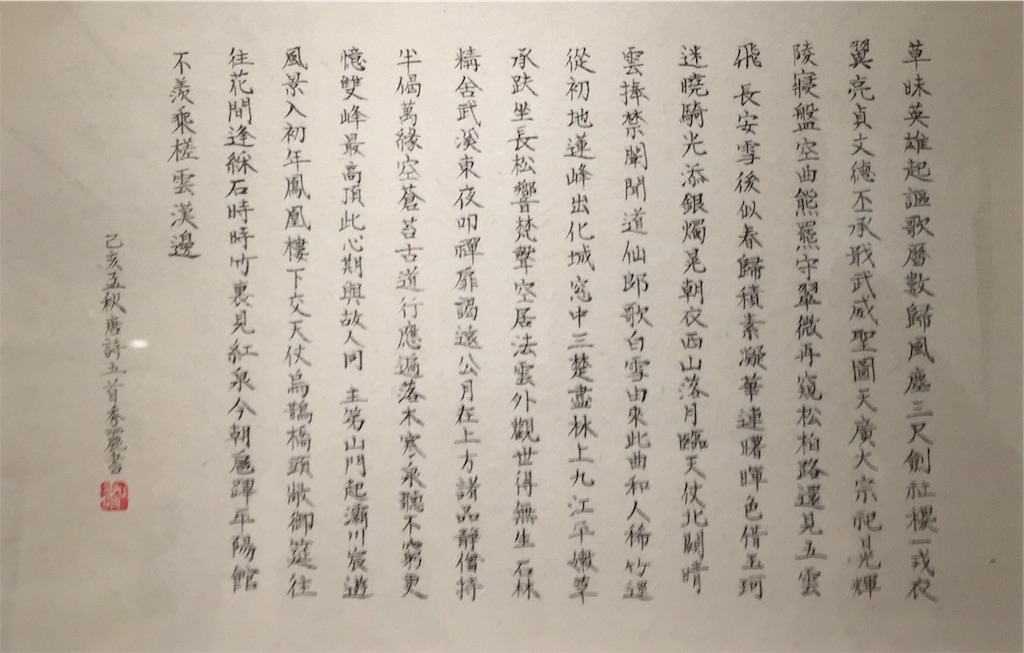 草昧英雄起謳歌曆數歸風塵三尺劍社稷一戎衣
翼亮貞文德丕承戢武威聖圖天廣大宗祀光輝
陵寢盤空曲熊羆守翠微再窺松柏路還見五雲
飛 長安雪後似春歸積素凝華連曙暉色借玉珂
迷曉騎光添銀燭晃朝衣西山落月臨天仗北闕晴
雲捧禁闈聞道仙郎歌白雪由來此曲和人稀 竹逕
從初地蓮峰出化城窓中三楚盡林上九江平嫰草
承趺坐長松響梵聲空居法雲外觀世得無生 石林
精舍武溪東夜叩禪扉謁遠公月在上方諸品靜僧持
半偈萬緣空蒼苔古道行應遍落木寒泉聽不窮更
憶雙峰最高頂此心期與故人同 主第山門起灞川宸遊
風景入初年鳳凰樓下交天仗烏鵲橋頭敞御筵往
往花間逢綵石時時竹裏見紅泉今朝扈蹕平陽館
不羨乘槎雲漢邊
己亥孟秋唐詩五首秀麗書